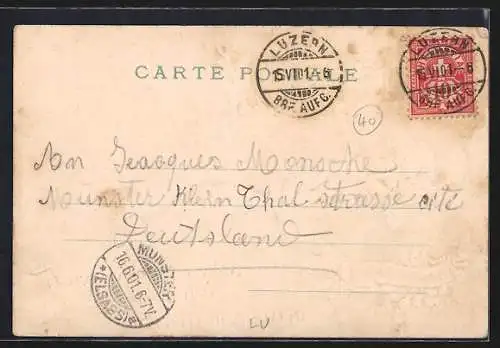 CARTE POSTALE
LUZERN
15.VI.01.-6
BRF. AUFG.
LUZERN
VI.01.-6
BRF. AUFG.
40
An Jeaoques Monoche
Munster Klein Thal strasse cite
Deutsland
MÜNSTER
16.6.01.6-7V.
*(ELSASS)a
LU